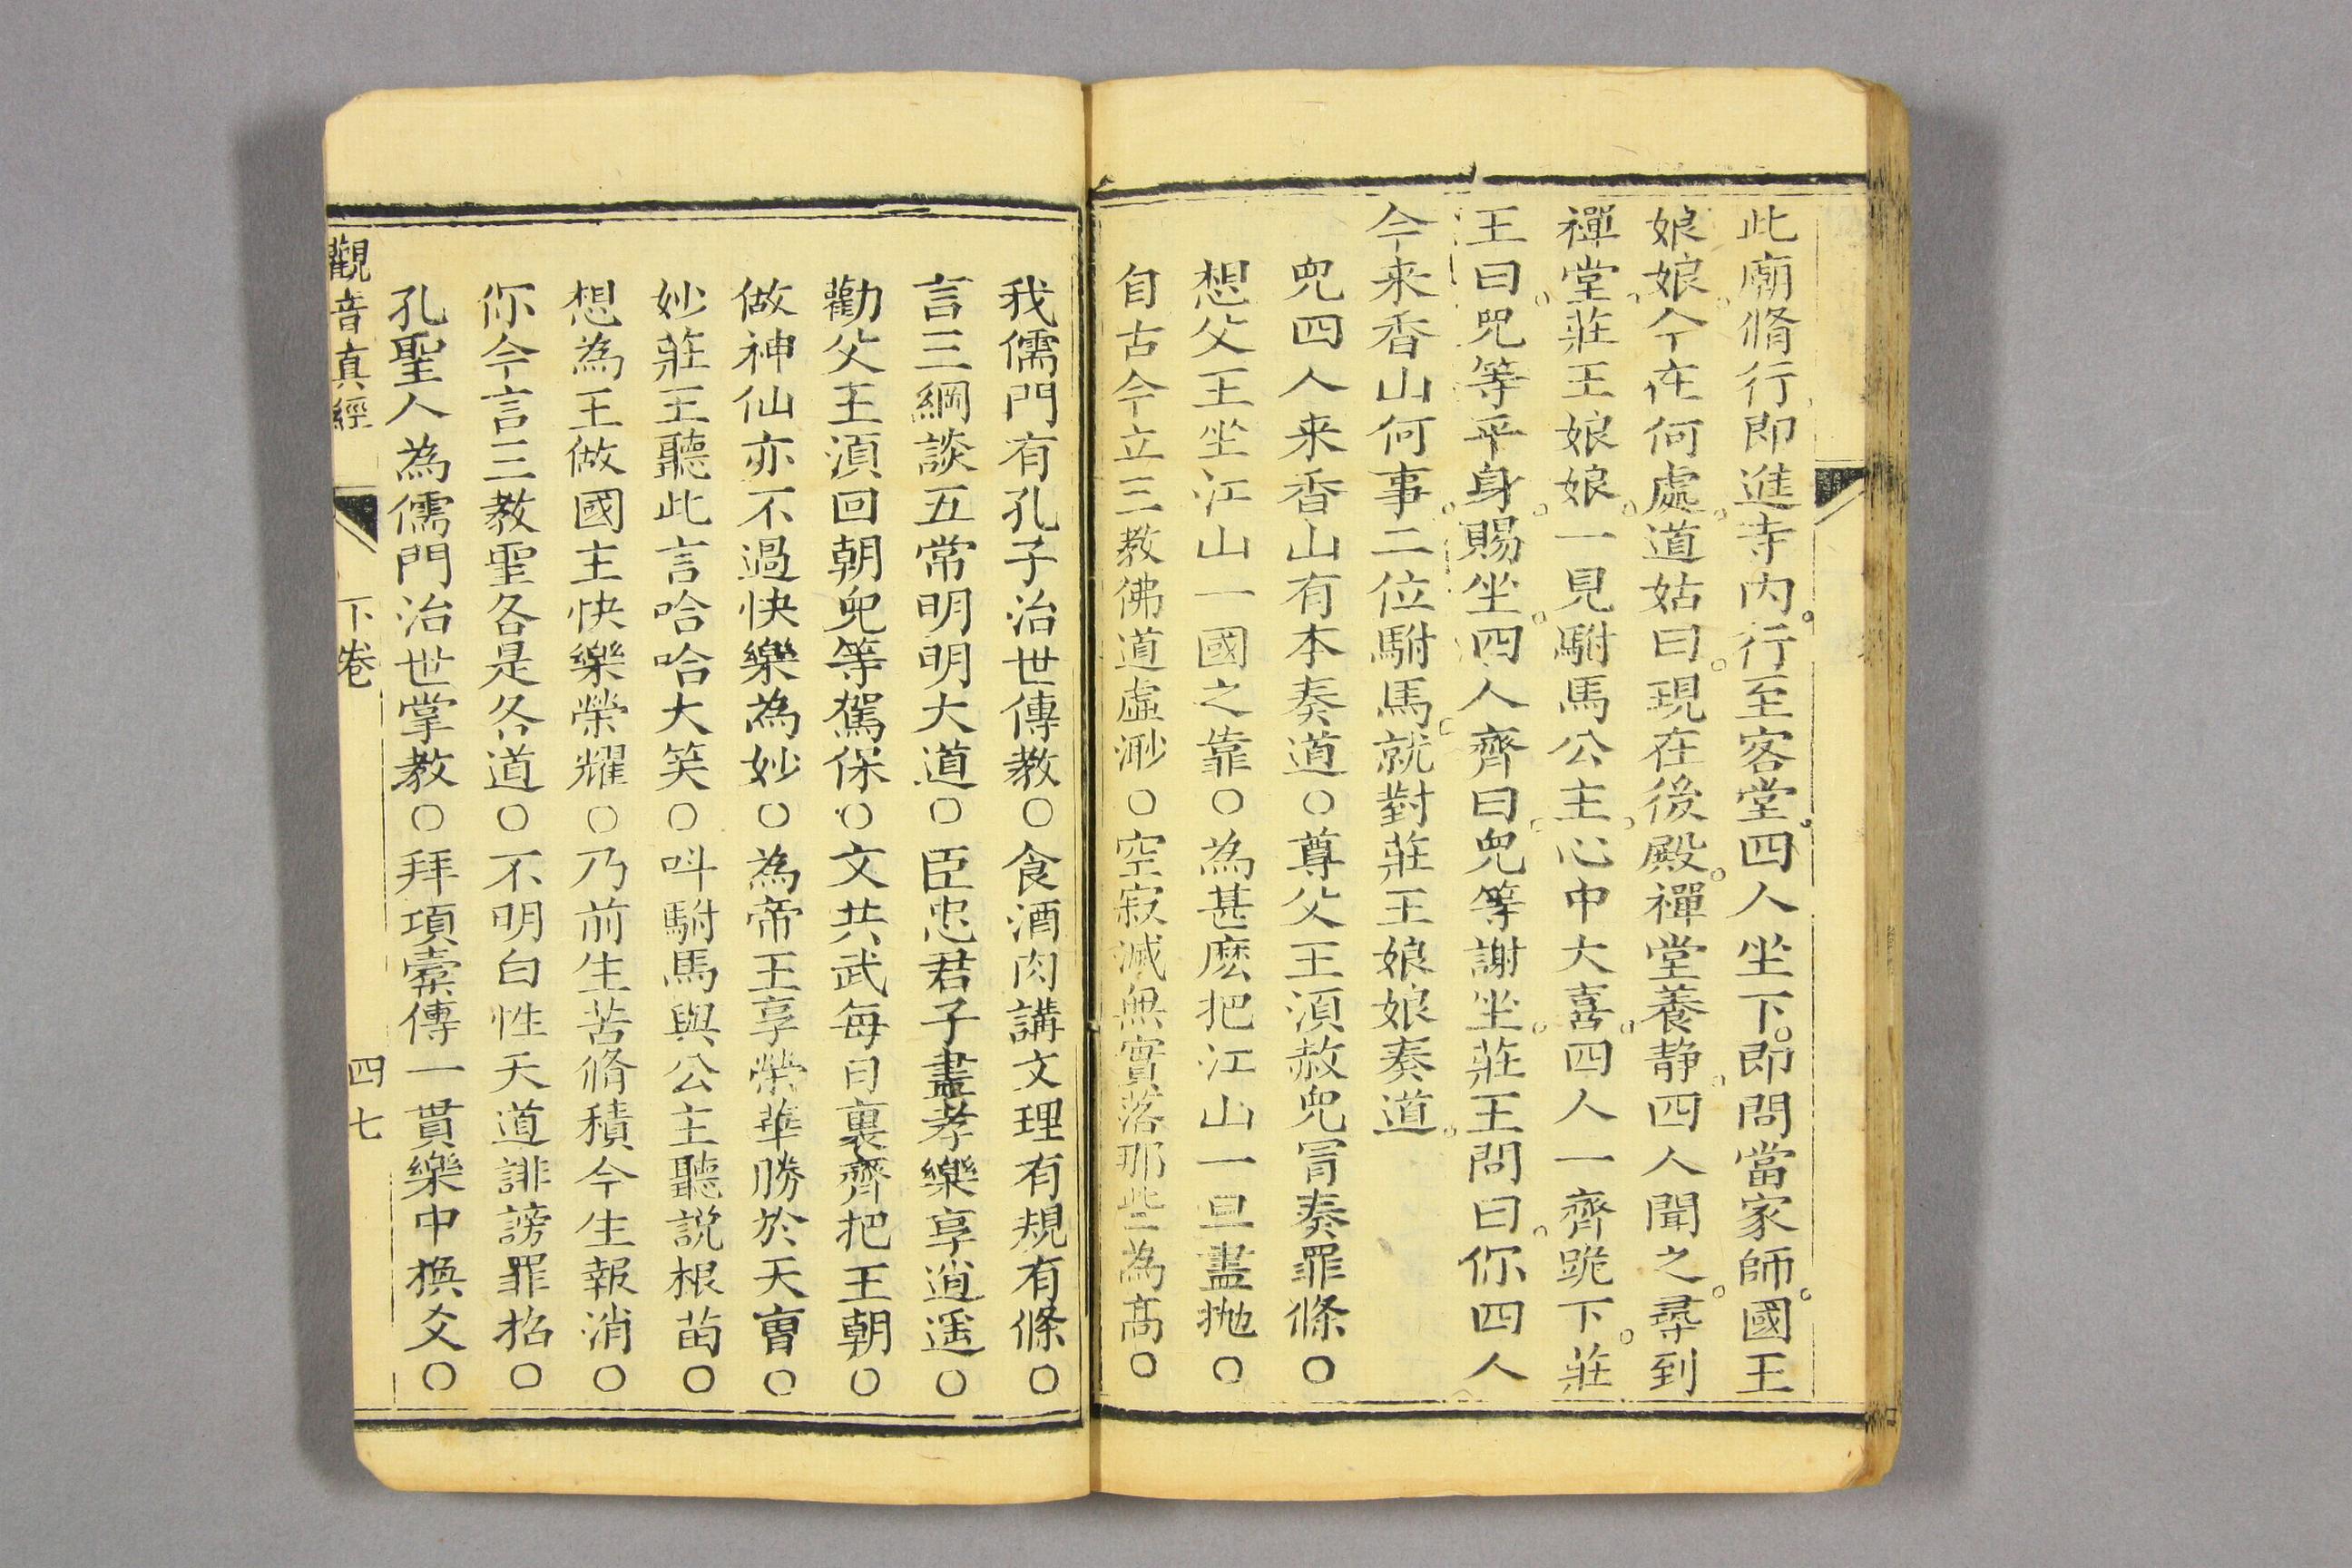 此廟脩行即進寺内。行至客堂。四人坐下。即問當家師。國王
娘娘。今在何處。道姑曰。現在後殿。禪堂養静。四人聞之。尋到
禪堂。莊王娘娘。一見駙馬公主。心中大喜。四人一齊跪下。莊
王曰。兕等平身。賜坐。四人齊曰。兕等謝坐。莊王問曰。你四人
今来香山何事。二位駙馬。就對莊王娘娘奏道。
兕四人来香山有本奏道○尊父王湏赦兕冐奏罪條○
想父王坐江山一國之靠○為甚麽把江山一旦盡抛○
自古今立三教佛道虚渺○空寂滅無實落那些為髙○
我儒門有孔子治世傳教○食酒肉講文理有規有條○
言三綱談五常明明大道○臣忠君子盡孝樂享逍遥○
勸父王湏回朝兕等駕保○文共武每日裏齊把王朝○
做神仙亦不過快樂為妙○為帝王享榮華勝於天曺○
妙莊王聽此言哈哈大笑○呌駙馬與公主聽説根苗○
想為王做國主快樂榮耀○乃前生苦脩積今生報消○
你今言三教聖各是各道○不明白性天道誹謗罪招○
孔聖人為儒門治世掌教○拜項橐傳一貫樂中換爻○
觀音真經 下卷 四七